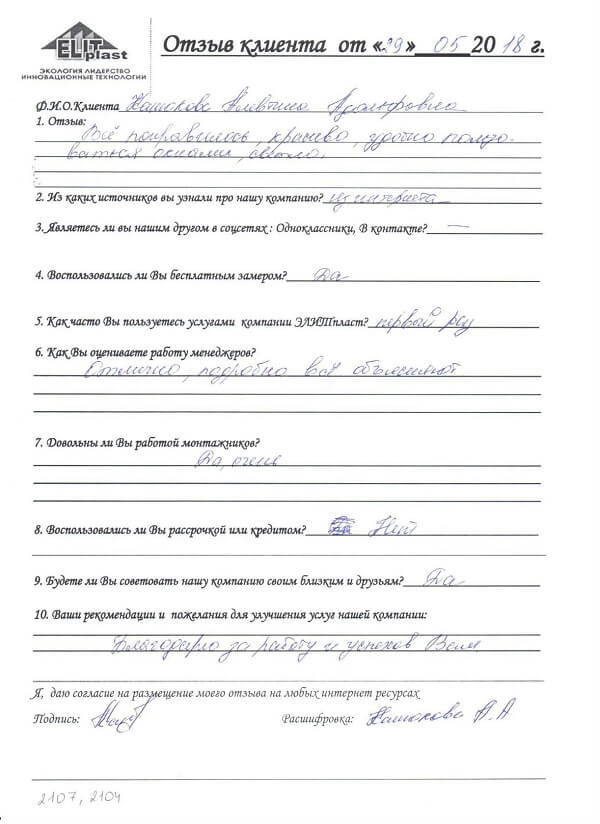 ELIT
plast
ЭКОЛОГИЯ ЛИДЕРСТВО
ИННОВАЦИОННЫЕ ТЕХНОЛОГИИ
Отзыв клиента от «29» 05 2018 г.
Ф.И.О.Клиента Алевтина Адольфовна
1. Отзыв:
Всё понравилось, красиво, удобно пользо-
ваться окнами, светло.
2. Из каких источников вы узнали про нашу компанию? из интернета
3. Являетесь ли вы нашим другом в соцсетях : Одноклассники, В контакте? —
4. Воспользовались ли Вы бесплатным замером? Да
5. Как часто Вы пользуетесь услугами компании ЭЛИТпласт? первый раз
6. Как Вы оцениваете работу менеджеров?
Отлично, подробно всё объясняют
7. Довольны ли Вы работой монтажников?
Да, очень
8. Воспользовались ли Вы рассрочкой или кредитом? Нет
9. Будете ли Вы советовать нашу компанию своим близким и друзьям? Да
10. Ваши рекомендации и пожелания для улучшения услуг нашей компании:
Благодарю за работу и успехов Вам
Я, даю согласие на размещение моего отзыва на любых интернет ресурсах
Подпись: Расшифровка: А.А
2107, 2104